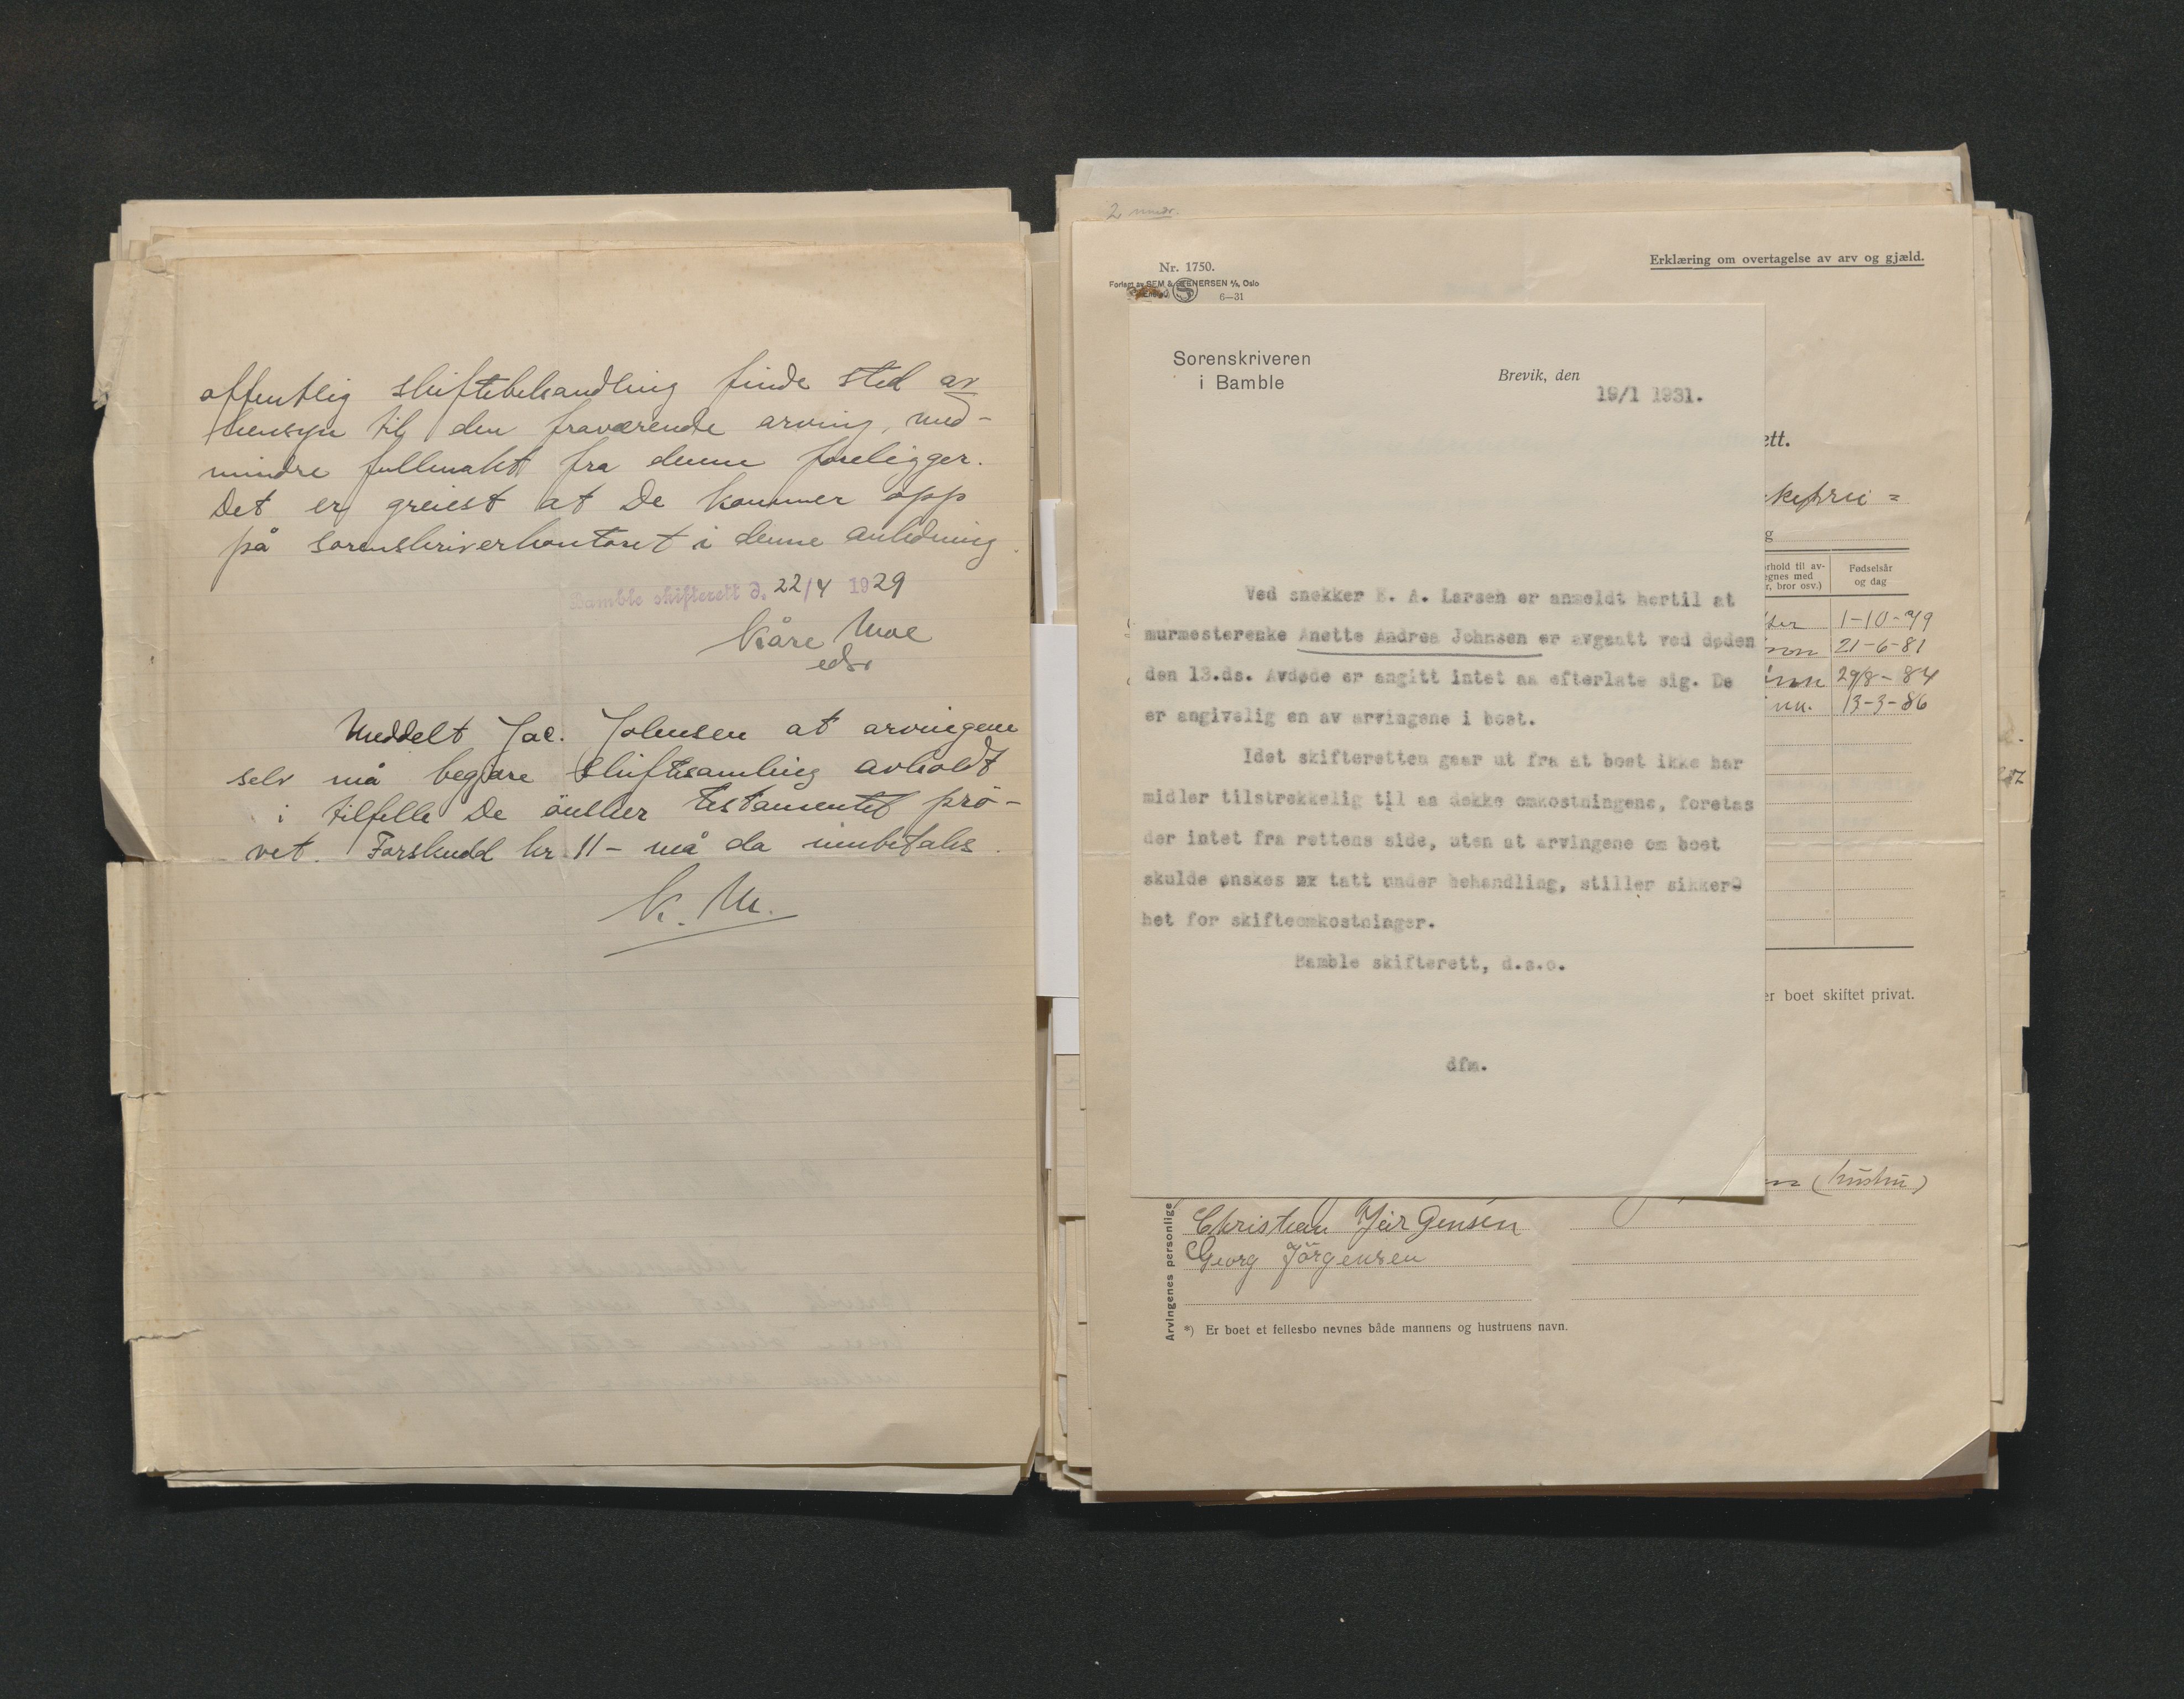 offentlig skiftebehandling finde sted av
hensyn til den fraværende arving, med-
mindre fullmakt fra denne foreligger.
Det er greiest at De kommer opp
på sorenskriverkontoret i denne anledning.
Bamble skifterett d. 22/4 1929
Kåre Moe
edsv
Meddelt Jac. Johnsen at arvingene
selv må begjære skiftesamling avholdt
i tilfelle De önsker testamentet prö-
vet. Forskudd kr. 11- må da innbetales.
K. M.
2 mndr.
Nr. 1750.
Forlagt av SEM & STENERSEN A/S, Oslo
6—31
Erklæring om overtagelse av arv og gjæld.
Sorenskriveren
i Bamble
Brevik, den
19/1 1931.
Ved snekker E. A. Larsen er anmeldt hertil at
murmesterenke Anette Andrea Johnsen er avgaatt ved døden
den 13.ds. Avdøde er angitt intet aa efterlate sig. De
er angivelig en av arvingene i boet.
Idet skifteretten gaar ut fra at boet ikke har
midler tilstrekkelig til aa dekke omkostningene, foretas
der intet fra rettens side, uten at arvingene om boet
skulde ønskes tatt under behandling, stiller sikker-
het for skifteomkostninger.
Bamble skifterett, d.s.o.
dfm.
ett.
g
rhold til av-
egnes med
r, bror osv.)
Fødselsår
og dag
1-10-79
21-6-81
29/8-84
13-3-86
er boet skiftet privat.
(hustru)
Arvingenes personlige
Christian Jörgensen
Georg Jörgensen
*) Er boet et fellesbo nevnes både mannens og hustruens navn.